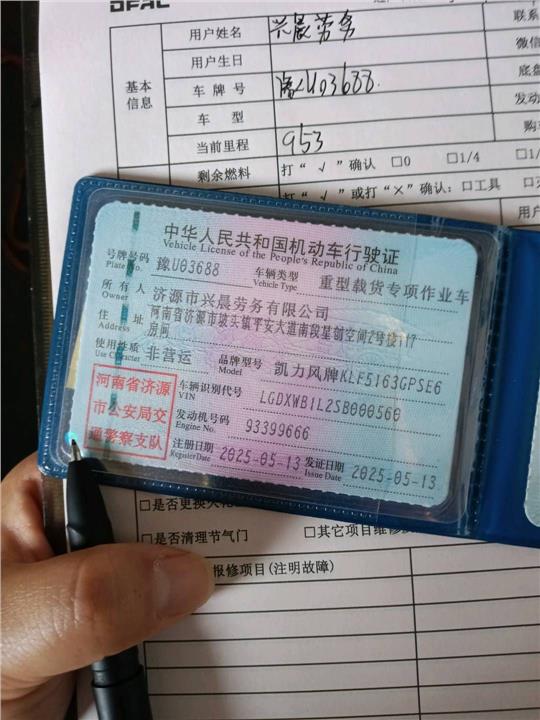 DFAC
基本信息
用户姓名 兴晨劳务 联系
用户生日 微信
车牌号 豫U03688 底盘
车型 发动
当前里程 953 购车
剩余燃料 打“√”确认 □0 □1/4 □1/
打“√”或打“×”确认：□工具
用户
中华人民共和国机动车行驶证
Vehicle License of the People's Republic of China
号牌号码 豫U03688 车辆类型 重型载货专项作业车
Plate No. Vehicle Type
所有人 济源市兴晨劳务有限公司
Owner
住址 河南省济源市坡头镇平安大道南段星创空间2号楼117
Address 房间
使用性质 非营运 品牌型号 凯力风牌KLF5163GPSE6
Use Character Model
河南省济源
市公安局交
通警察支队
车辆识别代号 LGDXWB1L2SB000560
VIN
发动机号码 93399666
Engine No.
注册日期 2025-05-13 发证日期 2025-05-13
Register Date Issue Date
□是否更换
□是否清理节气门 □其它项目维修
报修项目(注明故障)